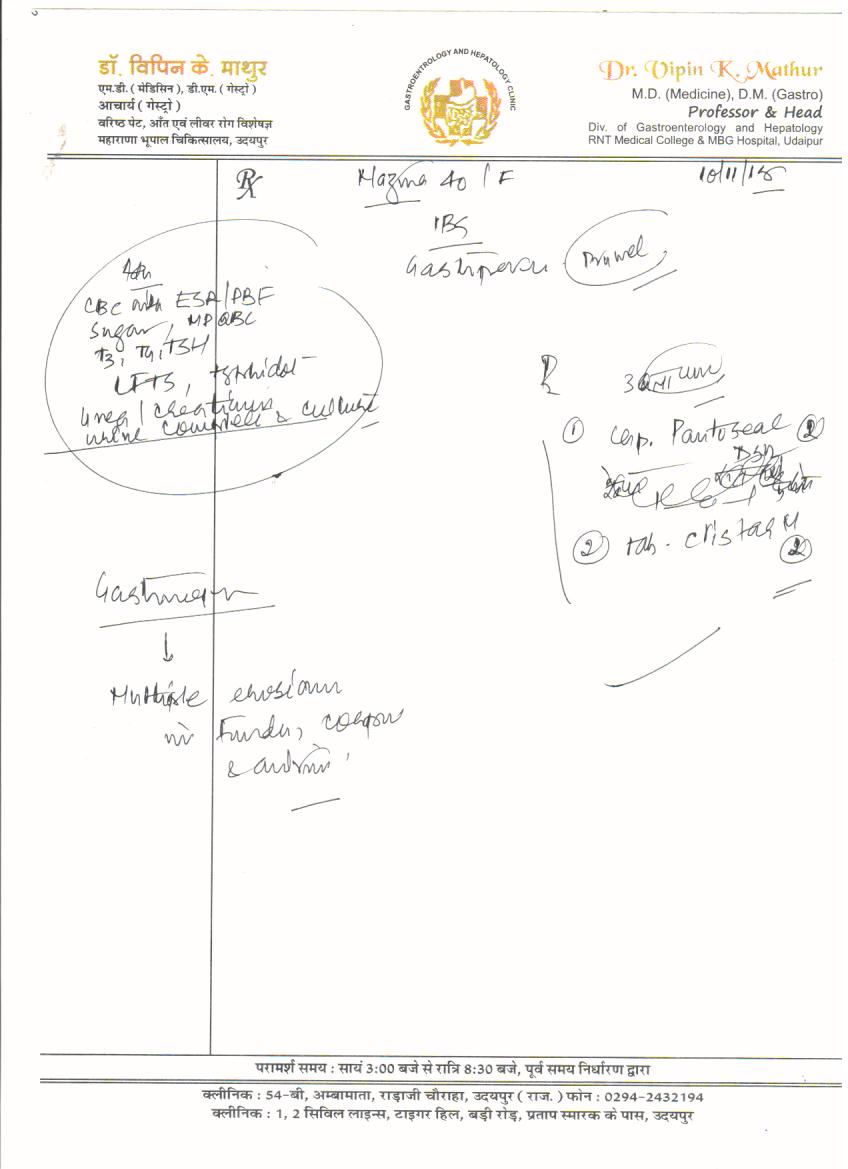 डॉ. विपिन के. माथुर
एम.डी. ( मेडिसिन ), डी.एम. ( गेस्ट्रो )
आचार्य ( गेस्ट्रो )
वरिष्ठ पेट, आँत एवं लीवर रोग विशेषज्ञ
महाराणा भूपाल चिकित्सालय, उदयपुर
GASTROENTEROLOGY AND HEPATOLOGY CLINIC
Dr. Vipin K. Mathur
M.D. (Medicine), D.M. (Gastro)
Professor & Head
Div. of Gastroenterology and Hepatology
RNT Medical College & MBG Hospital, Udaipur
Rx
40 / F
10/11/18
IBS
CBC with ESR/PBF
Sugar, MP QBC
T3, T4, TSH
LFTS,
Urea / Creatinine
urine complete & culture
R
① Cap. Pantoseal ②
DSR
② tab. Cristaa M
②
Multiple erosions
in Fundus, corpus
& antrum
परामर्श समय : सायं 3:00 बजे से रात्रि 8:30 बजे, पूर्व समय निर्धारण द्वारा
क्लीनिक : 54-बी, अम्बामाता, राड़ाजी चौराहा, उदयपुर ( राज. ) फोन : 0294-2432194
क्लीनिक : 1, 2 सिविल लाइन्स, टाइगर हिल, बड़ी रोड़, प्रताप स्मारक के पास, उदयपुर